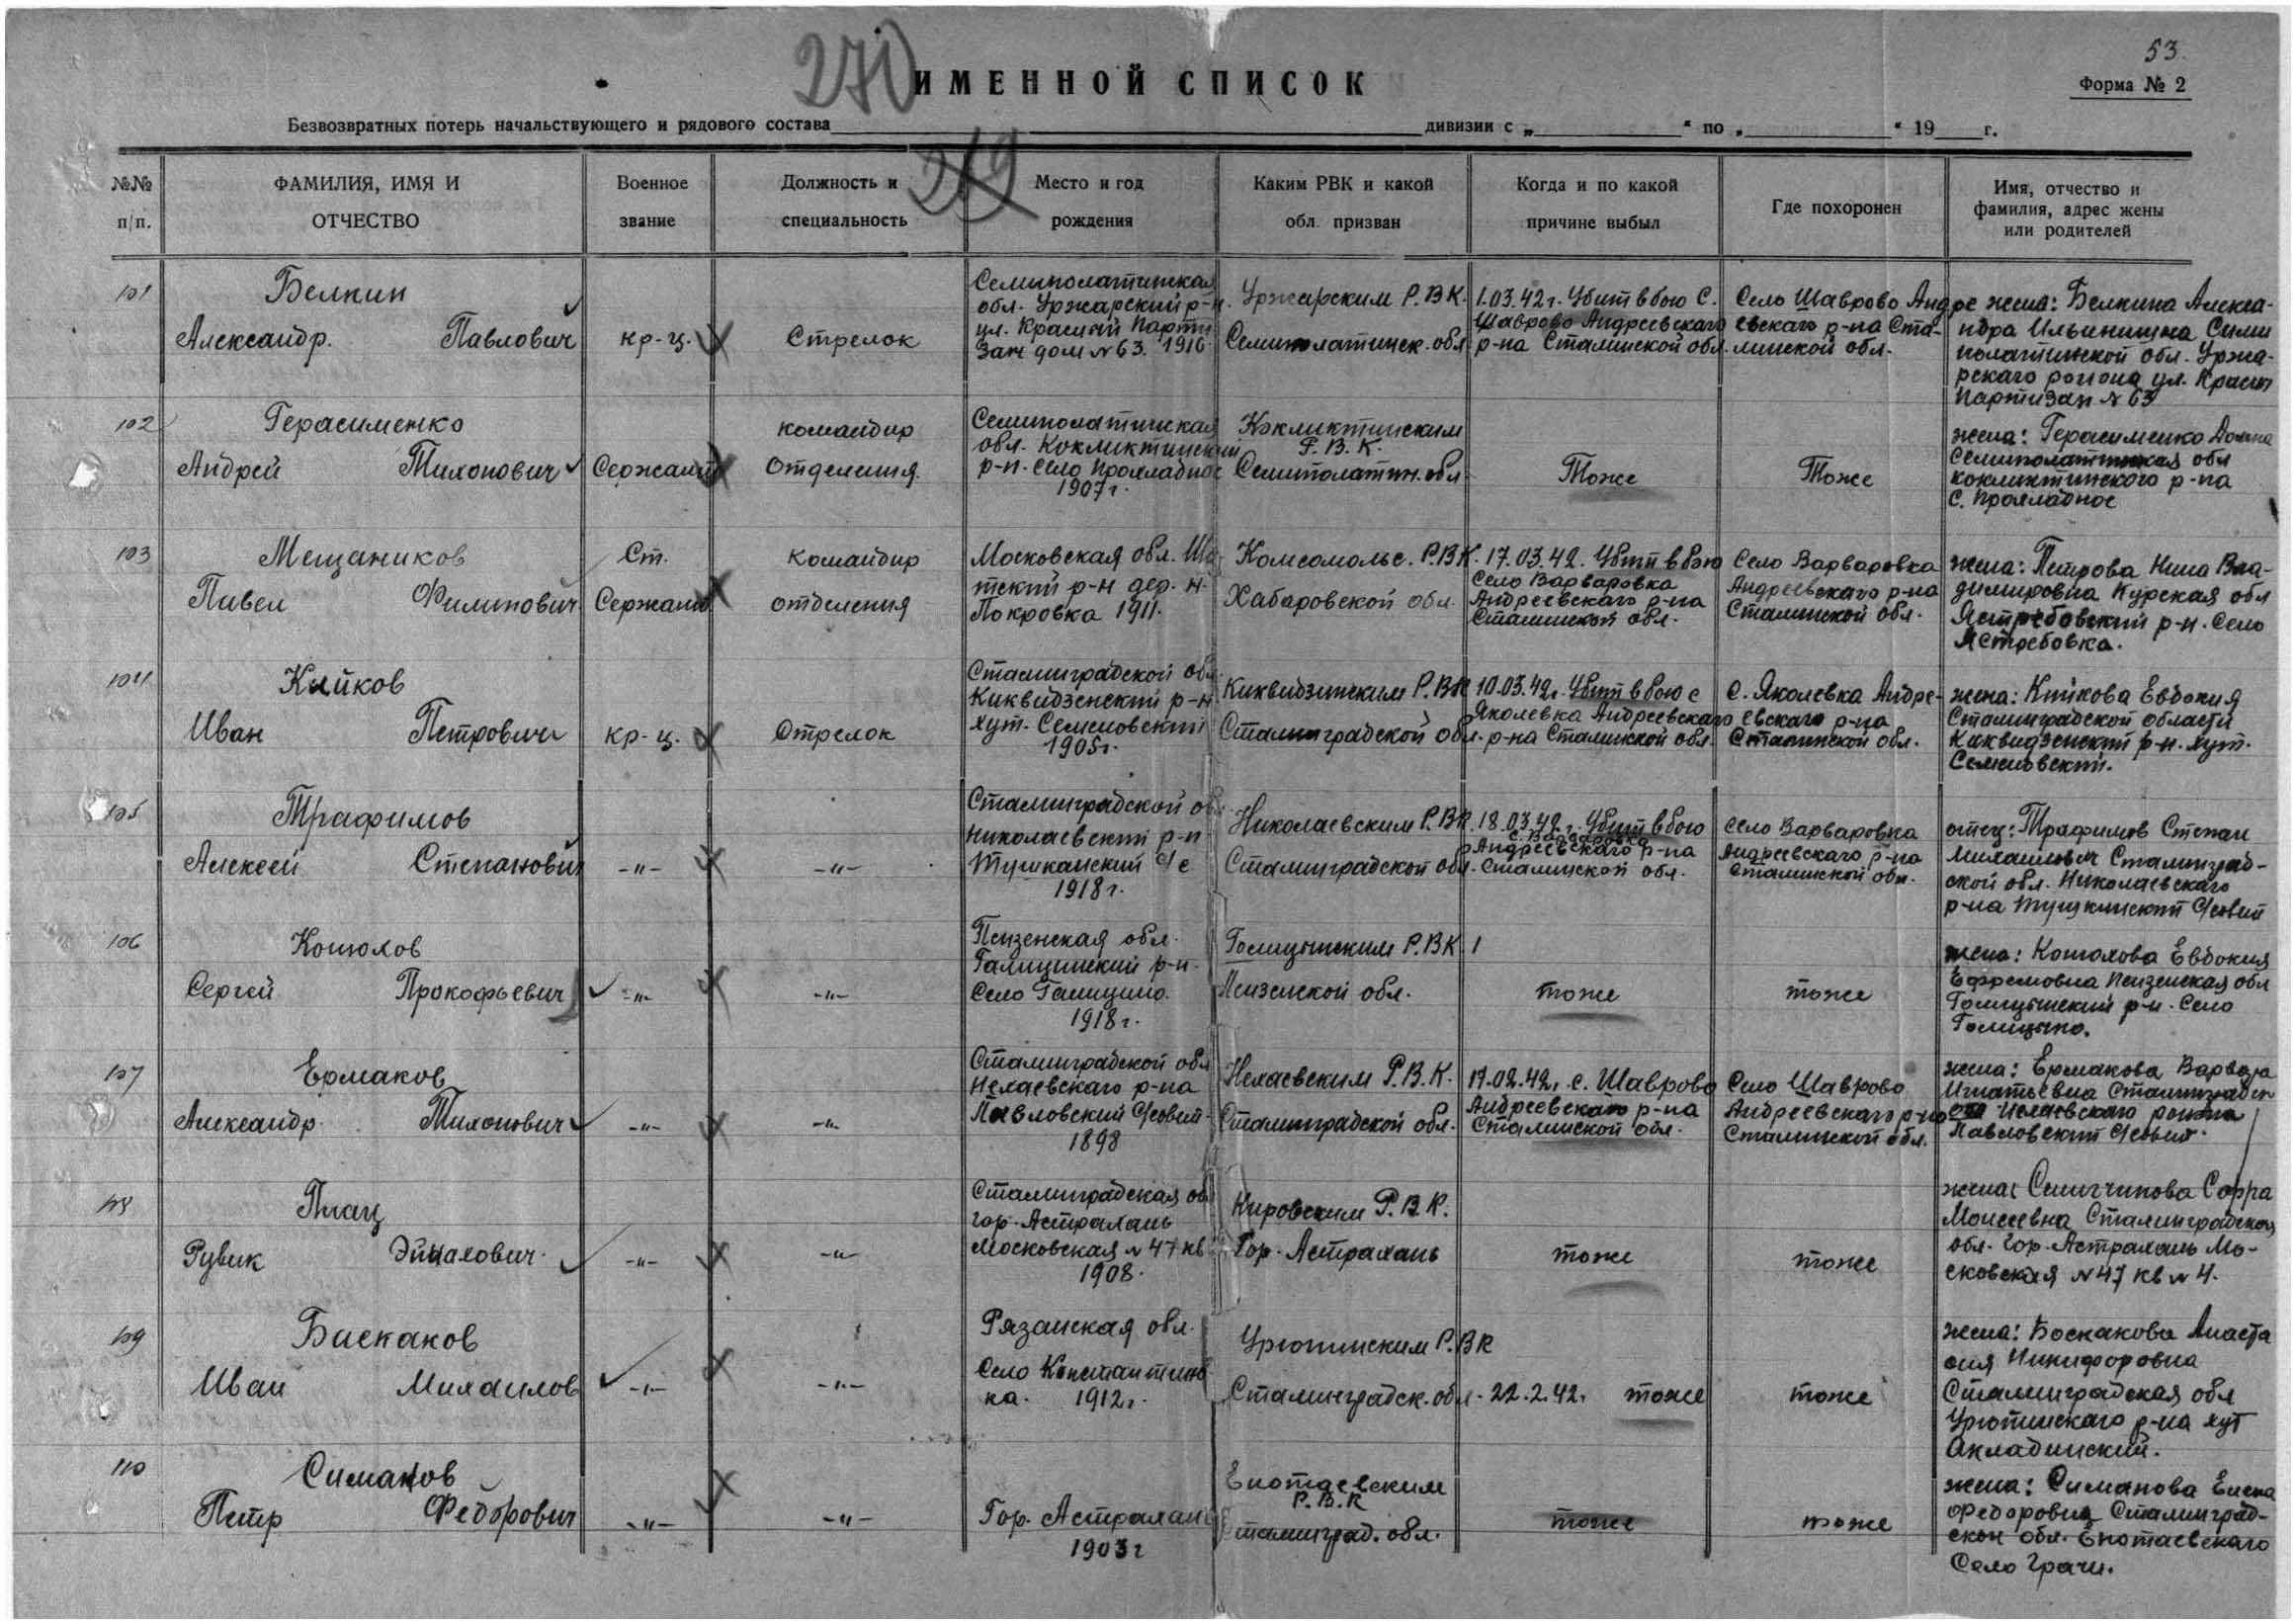 53.
270
ИМЕННОЙ СПИСОК
Форма № 2
Безвозвратных потерь начальствующего и рядового состава дивизии с „ " по „ " 19 г.
269
№№ п/п.
ФАМИЛИЯ, ИМЯ И ОТЧЕСТВО
Военное звание
Должность и специальность
Место и год рождения
Каким РВК и какой обл. призван
Когда и по какой причине выбыл
Где похоронен
Имя, отчество и фамилия, адрес жены или родителей
101
Белкин
Александр. Павлович
кр-ц.
Стрелок
Семиполатинская
обл. Уржарский р-н.
ул. Красный Парти
зан дом №63. 1916
Уржарским Р.ВК.
Семиполатинск. обл
1.03.42г. Убит в бою С.
Шаврово Андреевскаго
р-на Сталинской обл.
Село Шаврово Андре
евскаго р-на Ста-
линской обл.
жена: Белкина Алекса-
ндра Ильинишна Семи
полатинской обл. Уржа-
рскаго района ул. Красн
Партизан №63
102
Герасименко
Андрей Тихонович
Сержант
командир
Отделения
Семиполатинская
обл. Кокпиктинский
р-н. село Прохладное
1907г.
Кокпиктинским
Р.В.К.
Семиполатин. обл
Тоже
Тоже
жена: Герасименко
Семиполатинская обл
кокпиктинского р-на
с. Прохладное
103
Мещаников
Павел Филипович
Ст.
Сержант
командир
отделения
Московская обл. Ша
тский р-н дер. Н.
Покровка 1911.
Комсомольс. Р.ВК.
Хабаровской обл.
17.03.42. Убит в бою
село Варваровка
Андреевскаго р-на
Сталинской обл.
Село Варваровка
Андреевскаго р-на
Сталинской обл.
жена: Петрова Нина Вла-
димировна Курская обл
Ястребовский р-н. Село
Ястребовка.
104
Кийков
Иван Петрович
кр-ц.
Стрелок
Сталинградской обл
Киквидзенский р-н
хут. Семеновский
1905г.
Киквидзинским Р.ВК
Сталинградской обл.
10.03.42г. Убит в бою с
Яколевка Андреевскаго
р-на Сталинской обл.
С. Яколевка Андре-
евскаго р-на
Сталинской обл.
жена: Кийкова Евдокия
Сталинградской области
Киквидзенский р-н. хут.
Семеновский.
105
Трафимов
Алексей Степанович
-"-
-"-
Сталинградской об
Николаевский р-н
с/с
1918г.
Николаевским Р.ВК.
Сталинградской обл.
18.03.42г. Убит в бою
с. Варваровка
Андреевскаго р-на
Сталинской обл.
село Варваровка
Андреевскаго р-на
Сталинской обл.
отец: Трафимов Степан
Михаилович Сталинград-
ской обл. Николаевскаго
р-на с/совет
106
Сергей Прокофьевич
-"-
-"-
Пензенская обл.
Галицинский р-н.
Село Галицино.
1918г.
Голицынским Р.ВК.
Пензенской обл.
тоже
тоже
жена: Евдокия
Ефремовна Пензенская обл
Голицынский р-н. Село
Голицыно.
107
Ермаков
Александр Тихонович
-"-
-"-
Сталинградской обл
Нехаевскаго р-на
Павловский с/совет
1898
Нехаевским Р.В.К.
Сталинградской обл.
17.02.42г. с. Шаврово
Андреевскаго р-на
Сталинской обл.
Село Шаврово
Андреевскаго р-на
Сталинской обл.
жена: Ермакова Варвара
Игнатьевна Сталинградск
Нехаевскаго района
Павловский с/совет.
108
Плац
Рувик
-"-
-"-
Сталинградская об
гор. Астрахань
Московская №47 кв
1908.
Кировским Р.В.К.
Гор. Астрахань
тоже
тоже
жена: Софра
Моисеевна Сталинградская
обл. гор. Астрахань Мо-
сковская №47 кв №4.
109
Баскаков
Иван Михаилов
-"-
-"-
Рязанская обл.
Село Константинов
ка. 1912г.
Урюпинским Р.ВК
Сталинградск. обл.
22.2.42. тоже
тоже
жена: Боскакова Анаста
сия Никифоровна
Сталинградская обл
Урюпинскаго р-на хут
Акладинский.
110
Симаков
Петр Федорович
-"-
-"-
Гор. Астрахань
1903г
Енотаевским
Р.В.К
Сталинград. обл.
тоже
тоже
жена: Симанова Елена
Федоровна Сталинград-
ской обл. Енотаевскаго
Село Грачи.